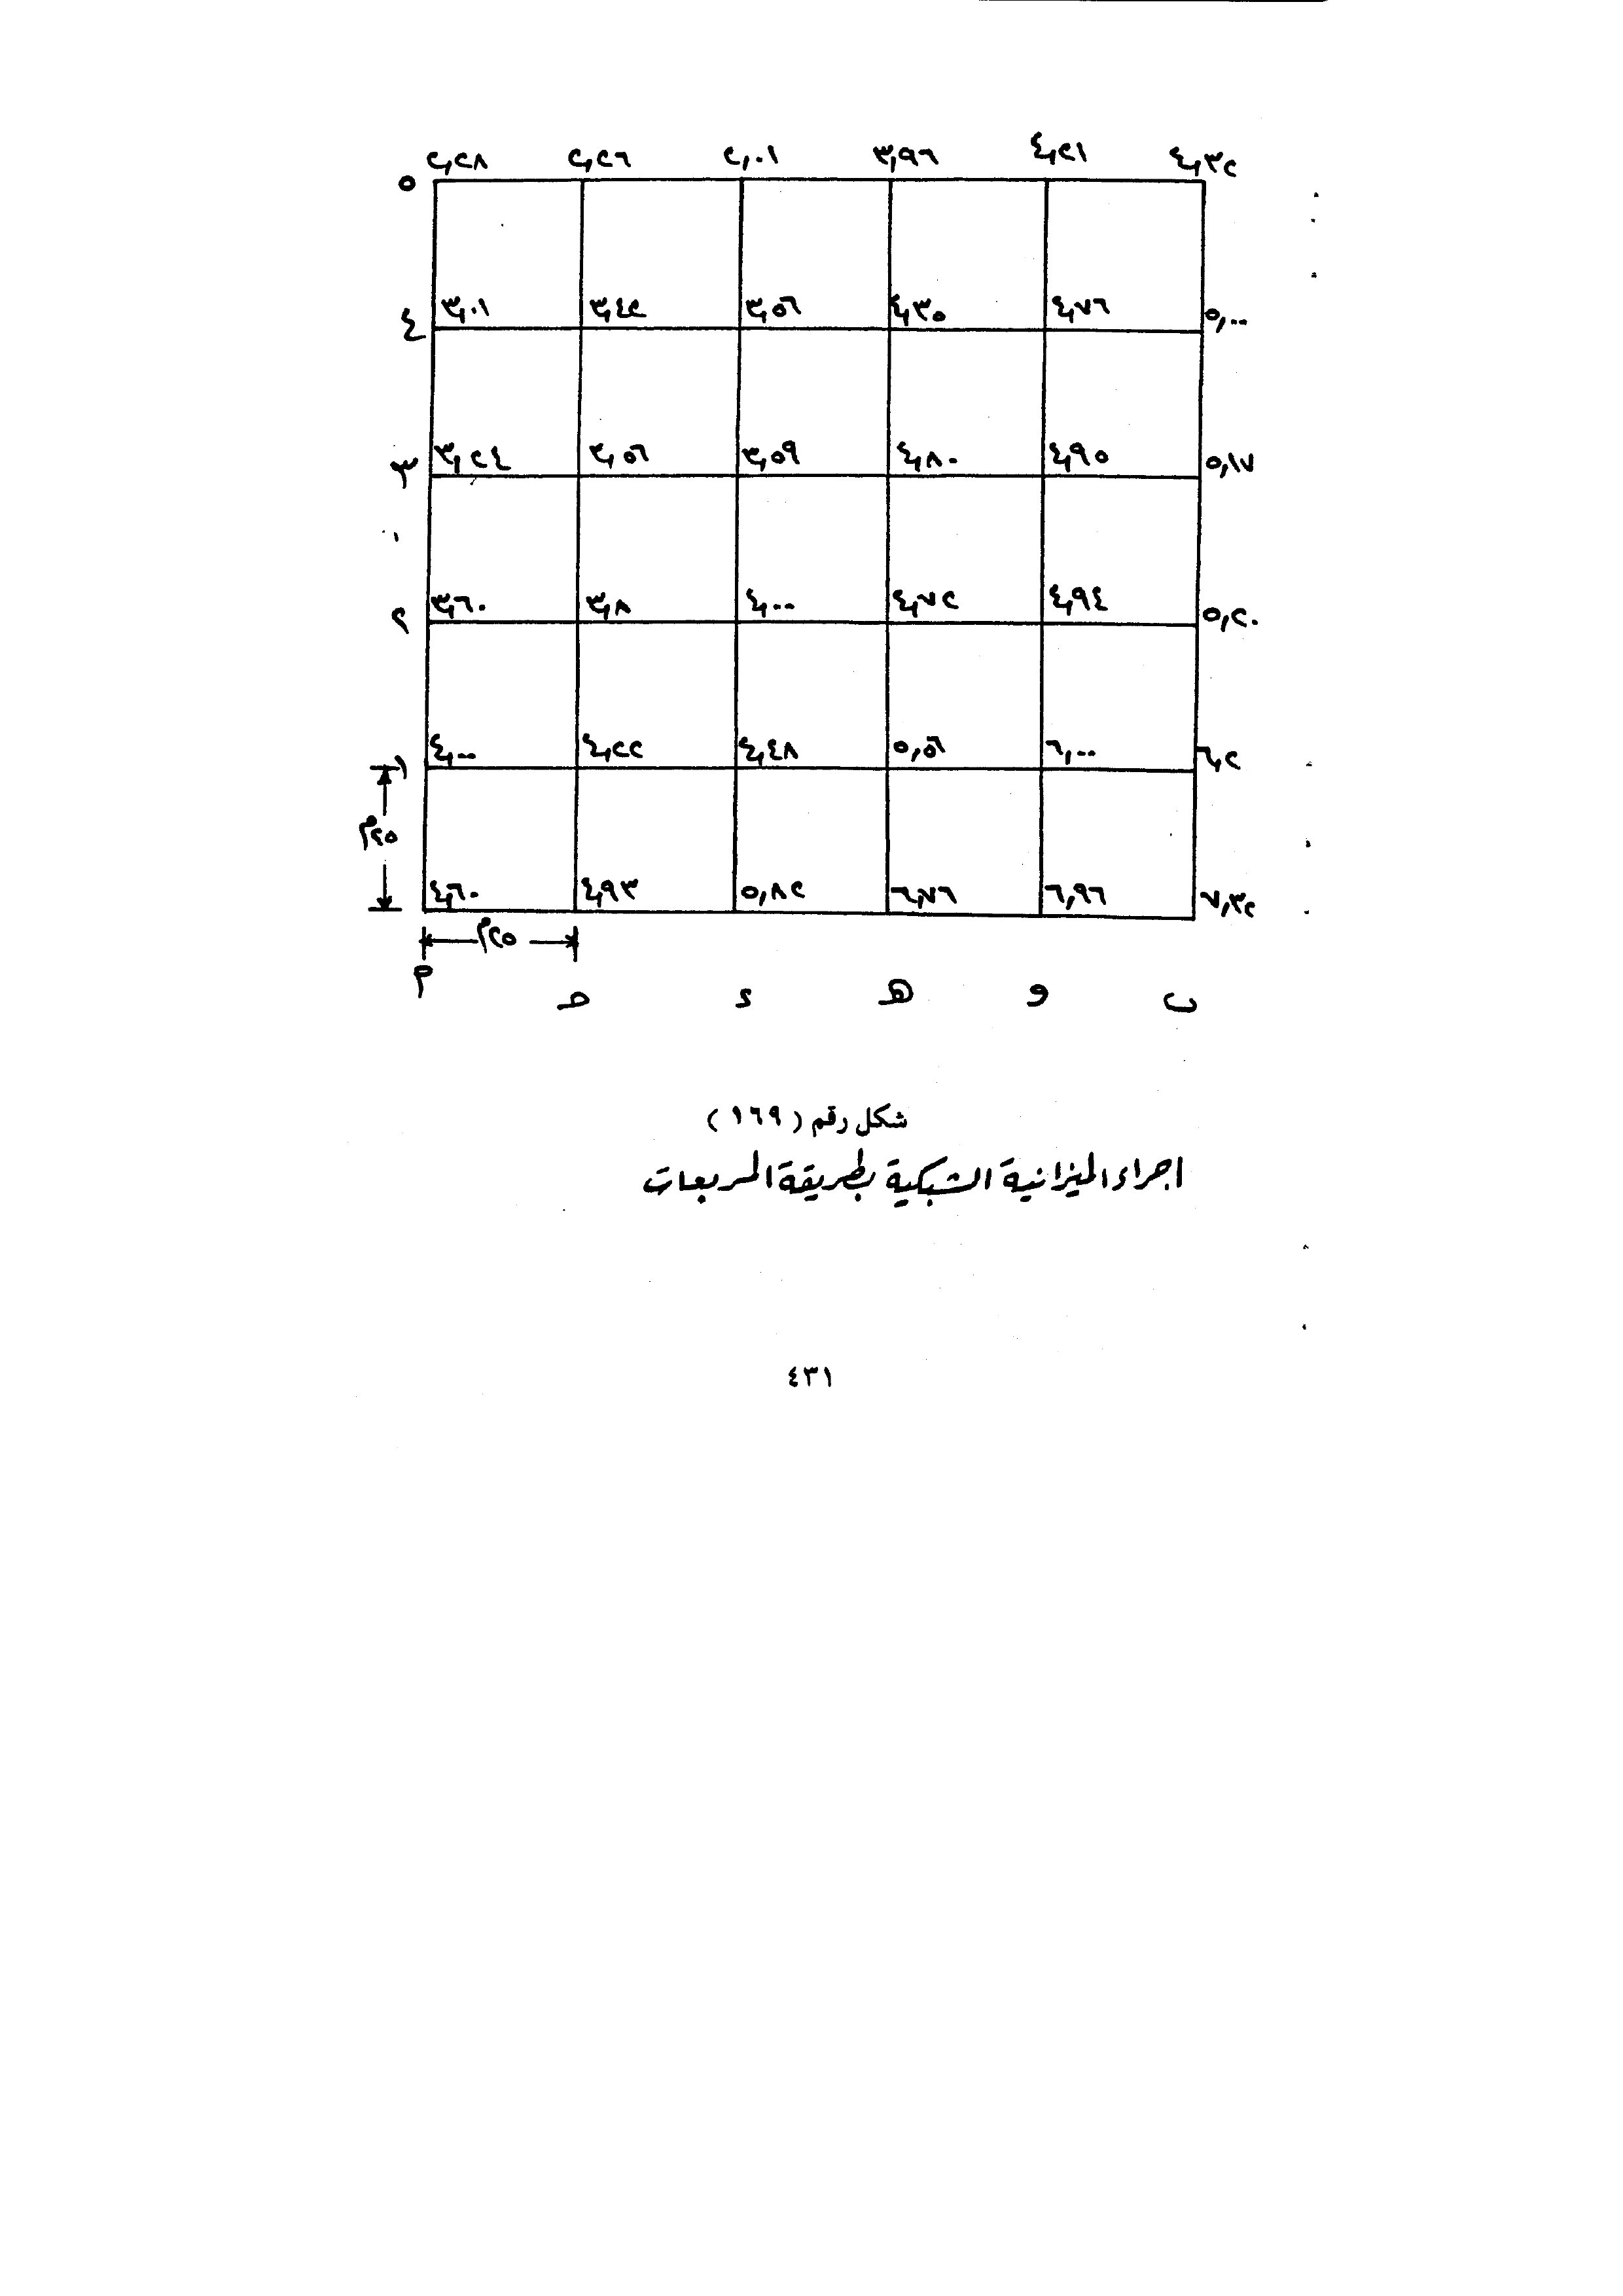 ٢,٢٨ ٢,٢٦ ٢,٠١ ٣,٩٦ ٤,٢١ ٤,٣٢
٥
٤ ٣,٠١ ٣,٤٢ ٣,٥٦ ٤,٣٥ ٤,٧٦ ٥,٠٠
٣ ٣,٢٤ ٣,٥٦ ٣,٥٩ ٤,٨٠ ٤,٩٥ ٥,١٧
٢ ٣,٦٠ ٣,٨ ٤,٠٠ ٤,٧٢ ٤,٩٤ ٥,٢٠
١ ٤,٠٠ ٤,٢٢ ٤,٤٨ ٥,٥٦ ٦,٠٠ ٦,٢
٢٥م
٤,٦٠ ٤,٩٣ ٥,٨٢ ٦,٧٦ ٦,٩٦ ٧,٣٢
٢٥م
م حـ د هـ و ب
شكل رقم (١٦٩)
اجراء الميزانية الشبكية بطريقة المربعات
٤٣١